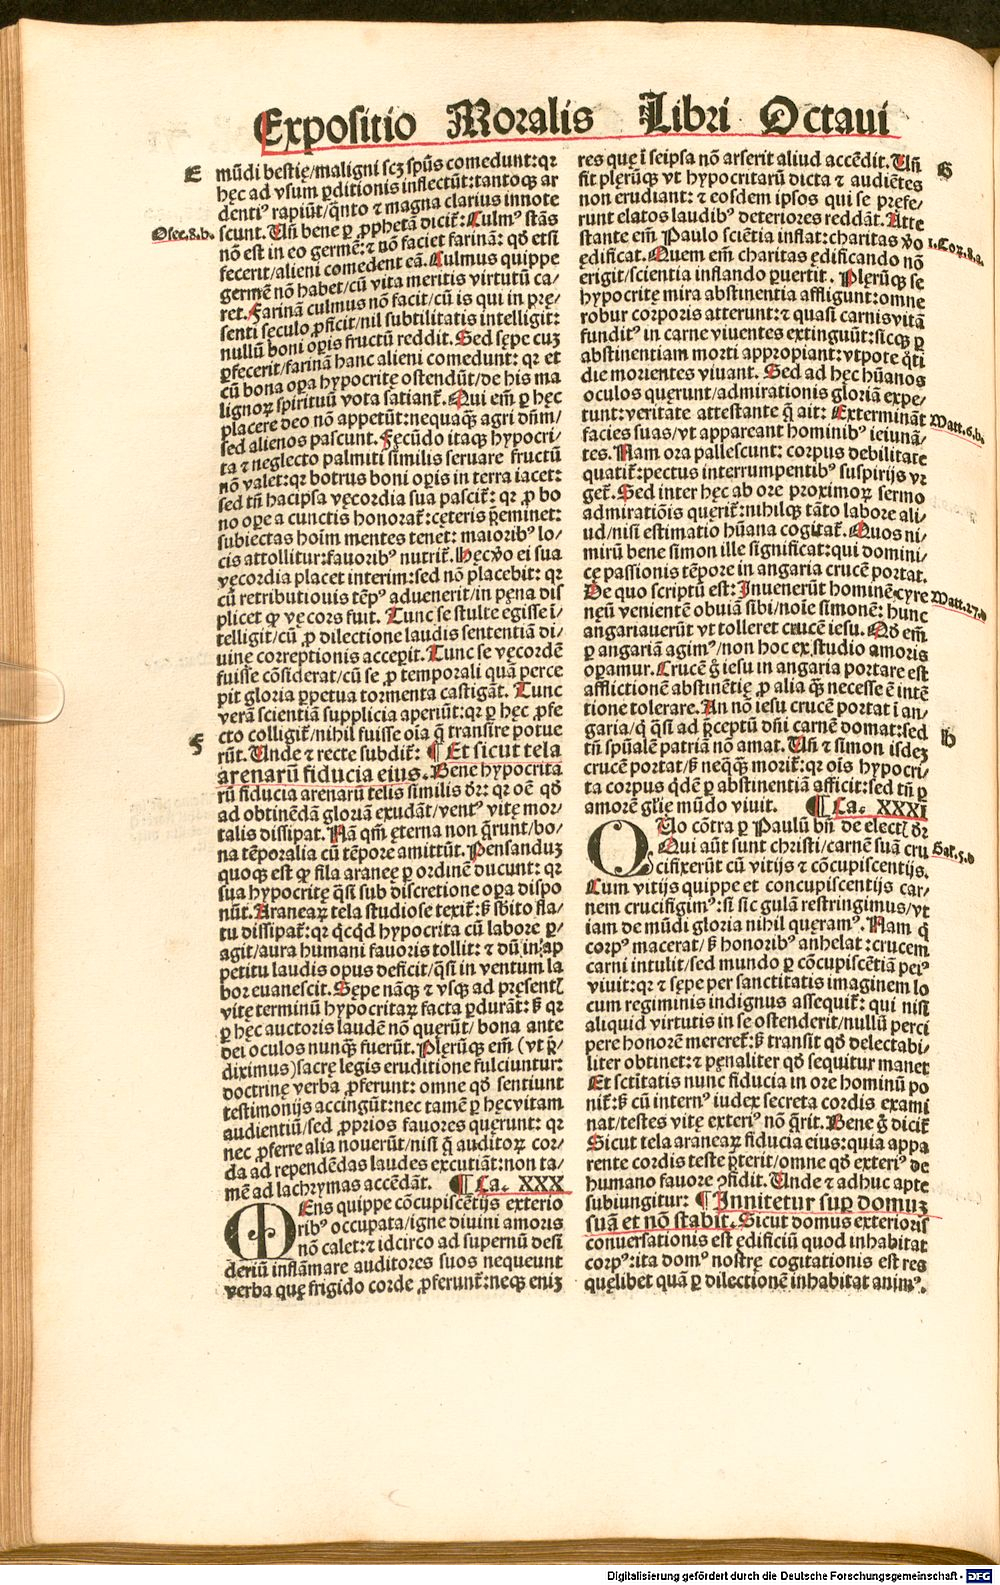 Expositio Moralis Libri Octaui
E
mūdi bestię/maligni scꝫ spūs comedunt:qꝛ
hęc ad vsum ꝑditionis inflectūt:tantoqꝫ ar
dentiꝰ rapiūt/q̄nto ⁊ magna clarius innote
Osee.8.b.
scunt. Uñ bene ꝑ ꝓphetā dicit̄: Culmꝰ stās
nō est in eo germē:⁊ nō faciet farinā: qđ etsi
fecerit/alieni comedent eā. Culmus quippe
germē nō habet/cū vita meritis virtutū ca/
ret. Farinā culmus nō facit/cū is qui in prę/
senti seculo ꝓficit/nil subtilitatis intelligit:
nullū boni oꝑis fructū reddit. Sed sępe cuꝫ
ꝑfecerit/farinā hanc alieni comedunt: qꝛ et
cū bona oꝑa hypocritę ostendūt/de his ma
lignoꝝ spirituū vota satiant̄. Qui em̄ ꝑ hęc
placere deo nō appetūt:nequaqꝫ agri dn̄m/
sed alienos pascunt. Fęcūdo itaqꝫ hypocri/
ta ⁊ neglecto palmiti similis seruare fructū
nō valet:qꝛ botrus boni oꝑis in terra iacet:
sed tn̄ hac ipsa vęcordia sua pascit̄: qꝛ ꝓ bo
no oꝑe a cunctis honorat̄:cęteris p̄eminet:
subiectas hoim mentes tenet: maioribꝰ lo/
cis attollitur:fauoribꝰ nutrit̄. Hęc v̄o ei sua
vęcordia placet interim:sed nō placebit: qꝛ
cū retributiouis tēpꝰ aduenerit/in pęna dis
plicet ꝙ vęcors fuit. Tunc se stulte egisse ī/
telligit/cū ꝓ dilectione laudis sententiā di/
uinę correptionis acceꝑit. Tunc se vęcordē
fuisse cōsiderat/cū se ꝓ temporali quā perce
pit gloria ꝑpetua tormenta castigāt. Tunc
verā scientiā supplicia aperiūt:qꝛ ꝑ hęc ꝓfe
F
cto colligit̄/nihil fuisse oīa q̄ transire potue
rūt. Unde ⁊ recte subdit̄: ¶ Et sicut tela
arenarū fiducia eius. Bene hypocrita
rū fiducia arenarū telis similis dr̄: qꝛ oē qđ
ad obtinēdā gloriā exudāt/ventꝰ vitę mor/
talis dissipat. Nā qm̄ ęterna non q̄runt/bo/
na tēporalia cū tēpore amittūt. Pensanduꝫ
quoqꝫ est ꝙ fila araneę ꝑ ordinē ducunt: qꝛ
sua hypocritę q̄si sub discretione oꝑa dispo
nūt. Araneaꝝ tela studiose texit̄:ß sb̄ito fla/
tu dissipat̄:qꝛ qͥcqͥd hypocrita cū labore ꝑ/
agit/aura humani fauoris tollit: ⁊ dū in ap
petitu laudis opus deficit/q̄si in ventum la
bor euanescit. Sępe nāqꝫ ⁊ vsqꝫ ad pręsentꝭ
vitę terminū hypocritaꝝ facta ꝑdurāt: ß qꝛ
ꝑ hęc auctoris laudē nō querūt/ bona ante
dei oculos nunq̄ꝫ fuerūt. Plęrūqꝫ em̄ (vt p̄/
diximus)sacrę legis eruditione fulciuntur:
doctrinę verba ꝓferunt: omne qđ sentiunt
testimonijs accingūt:nec tamē ꝑ hęc vitam
audientiū/sed ꝓprios fauores quęrunt: qꝛ
nec ꝓferre alia nouerūt/nisi q̄ auditoꝝ cor/
da ad rependēdas laudes excutiāt:non ta/
mē ad lachrymas accēdāt. ¶ Ca. XXX
MEns quippe cōcupiscētijs exterio
ribꝰ occupata/igne diuini amoris
nō calet:⁊ idcirco ad supernū desi
deriū inflāmare auditores suos nequeunt
verba quę frigido corde ꝓferunt̄:neqꝫ eniꝫ
res quę ī seipsa nō arserit aliud accēdit. Uñ
G
fit plęrūqꝫ vt hypocritarū dicta ⁊ audiētes
non erudiant: ⁊ eosdem ipsos qui se prefe/
runt elatos laudibꝰ deteriores reddāt. Atte
stante em̄ Paulo sciētia inflat:charitas v̄o
1.Coꝝ.8.a.
ędificat. Quem em̄ charitas ędificando nō
erigit/scientia inflando ꝑuertit. Plęrūqꝫ se
hypocritę mira abstinentia affligunt:omne
robur corporis atterunt:⁊ quasi carnis vitā
funditꝰ in carne viuentes extinguūt:sicqꝫ ꝑ
abstinentiam morti appropiant:vtpote q̄ti
die morientes viuant. Sed ad hęc hūanos
oculos quęrunt/admirationis gloriā expe/
tunt:veritate attestante q̄ ait: Extermināt
Matt.6.b.
facies suas/vt appareant hominibꝰ ieiunā/
tes. Nam ora pallescunt: corpus debilitate
quatit̄:pectus interrumpentibꝰ suspirijs vꝛ
get̄. Sed inter hęc ab ore proximoꝝ sermo
admiratiōis querit̄:nihilqꝫ tāto labore ali/
ud/nisi estimatio hūana cogitat̄. Quos ni/
mirū bene simon ille significat:qui domini/
cę passionis tēpore in angaria crucē portat.
De quo scriptū est: Inuenerūt hominē cyre
Matt.27.d
neū venientē obuiā sibi/noīe simonē: hunc
angariauerūt vt tolleret crucē iesu. Qđ em̄
ꝑ angariā agimꝰ/non hoc ex studio amoris
oꝑamur. Crucē g̊ iesu in angaria portare est
afflictionē abstinētię ꝓ alia q̄ꝫ necesse ē intē
tione tolerare. An nō iesu crucē portat ī an/
garia/qͥ q̄si ad p̄ceptū dn̄i carnē domat:sed
H
tn̄ spūalē patriā nō amat. Uñ ⁊ simon isdeꝫ
crucē portat/ß neqͣqͣꝫ morit̄: qꝛ oīs hypocri/
ta corpus qͥdē ꝑ abstinētiā afficit:sed tn̄ ꝑ
amorē glīę mūdo viuit. ¶ Ca. XXXI
QUo cōtra ꝑ Paulū bn̄ de electꝭ dr̄
Qui aūt sunt christi/carnē suā cru
Gal.5.d
cifixerūt cū vitijs ⁊ cōcupiscentijs.
Cum vitijs quippe et concupiscentijs car/
nem crucifigimꝰ:si sic gulā restringimus/vt
iam de mūdi gloria nihil quęramꝰ. Nam q̄
corpꝰ macerat/ß honoribꝰ anhelat:crucem
carni intulit/sed mundo ꝑ cōcupiscētiā peiꝰ
viuit:qꝛ ⁊ sępe per sanctitatis imaginem lo
cum regiminis indignus assequit̄: qui nisi
aliquid virtutis in se ostenderit/nullū perci
pere honorē mereret̄:ß transit qđ delectabi/
liter obtinet:⁊ pęnaliter qđ sequitur manet
Et sctītatis nunc fiducia in ore hominū po
nit̄:ß cū internꝰ iudex secreta cordis exami
nat/testes vitę exteriꝰ non q̄rit. Bene g̊ dicit̄
Sicut tela araneaꝝ fiducia eius:quia appa
rente cordis teste p̄terit/omne qđ exteriꝰ de
humano fauore ꝯfidit. Unde ⁊ adhuc apte
subiungitur: ¶ Innitetur suꝑ domuꝫ
suā et nō stabit. Sicut domus exterioris
conuersationis est ędificiū quod inhabitat
corpꝰ:ita domꝰ nostrę cogitationis est res
quęlibet quā ꝑ dilectionē inhabitat animꝰ.
Digitalisierung gefördert durch die Deutsche Forschungsgemeinschaft - DFG